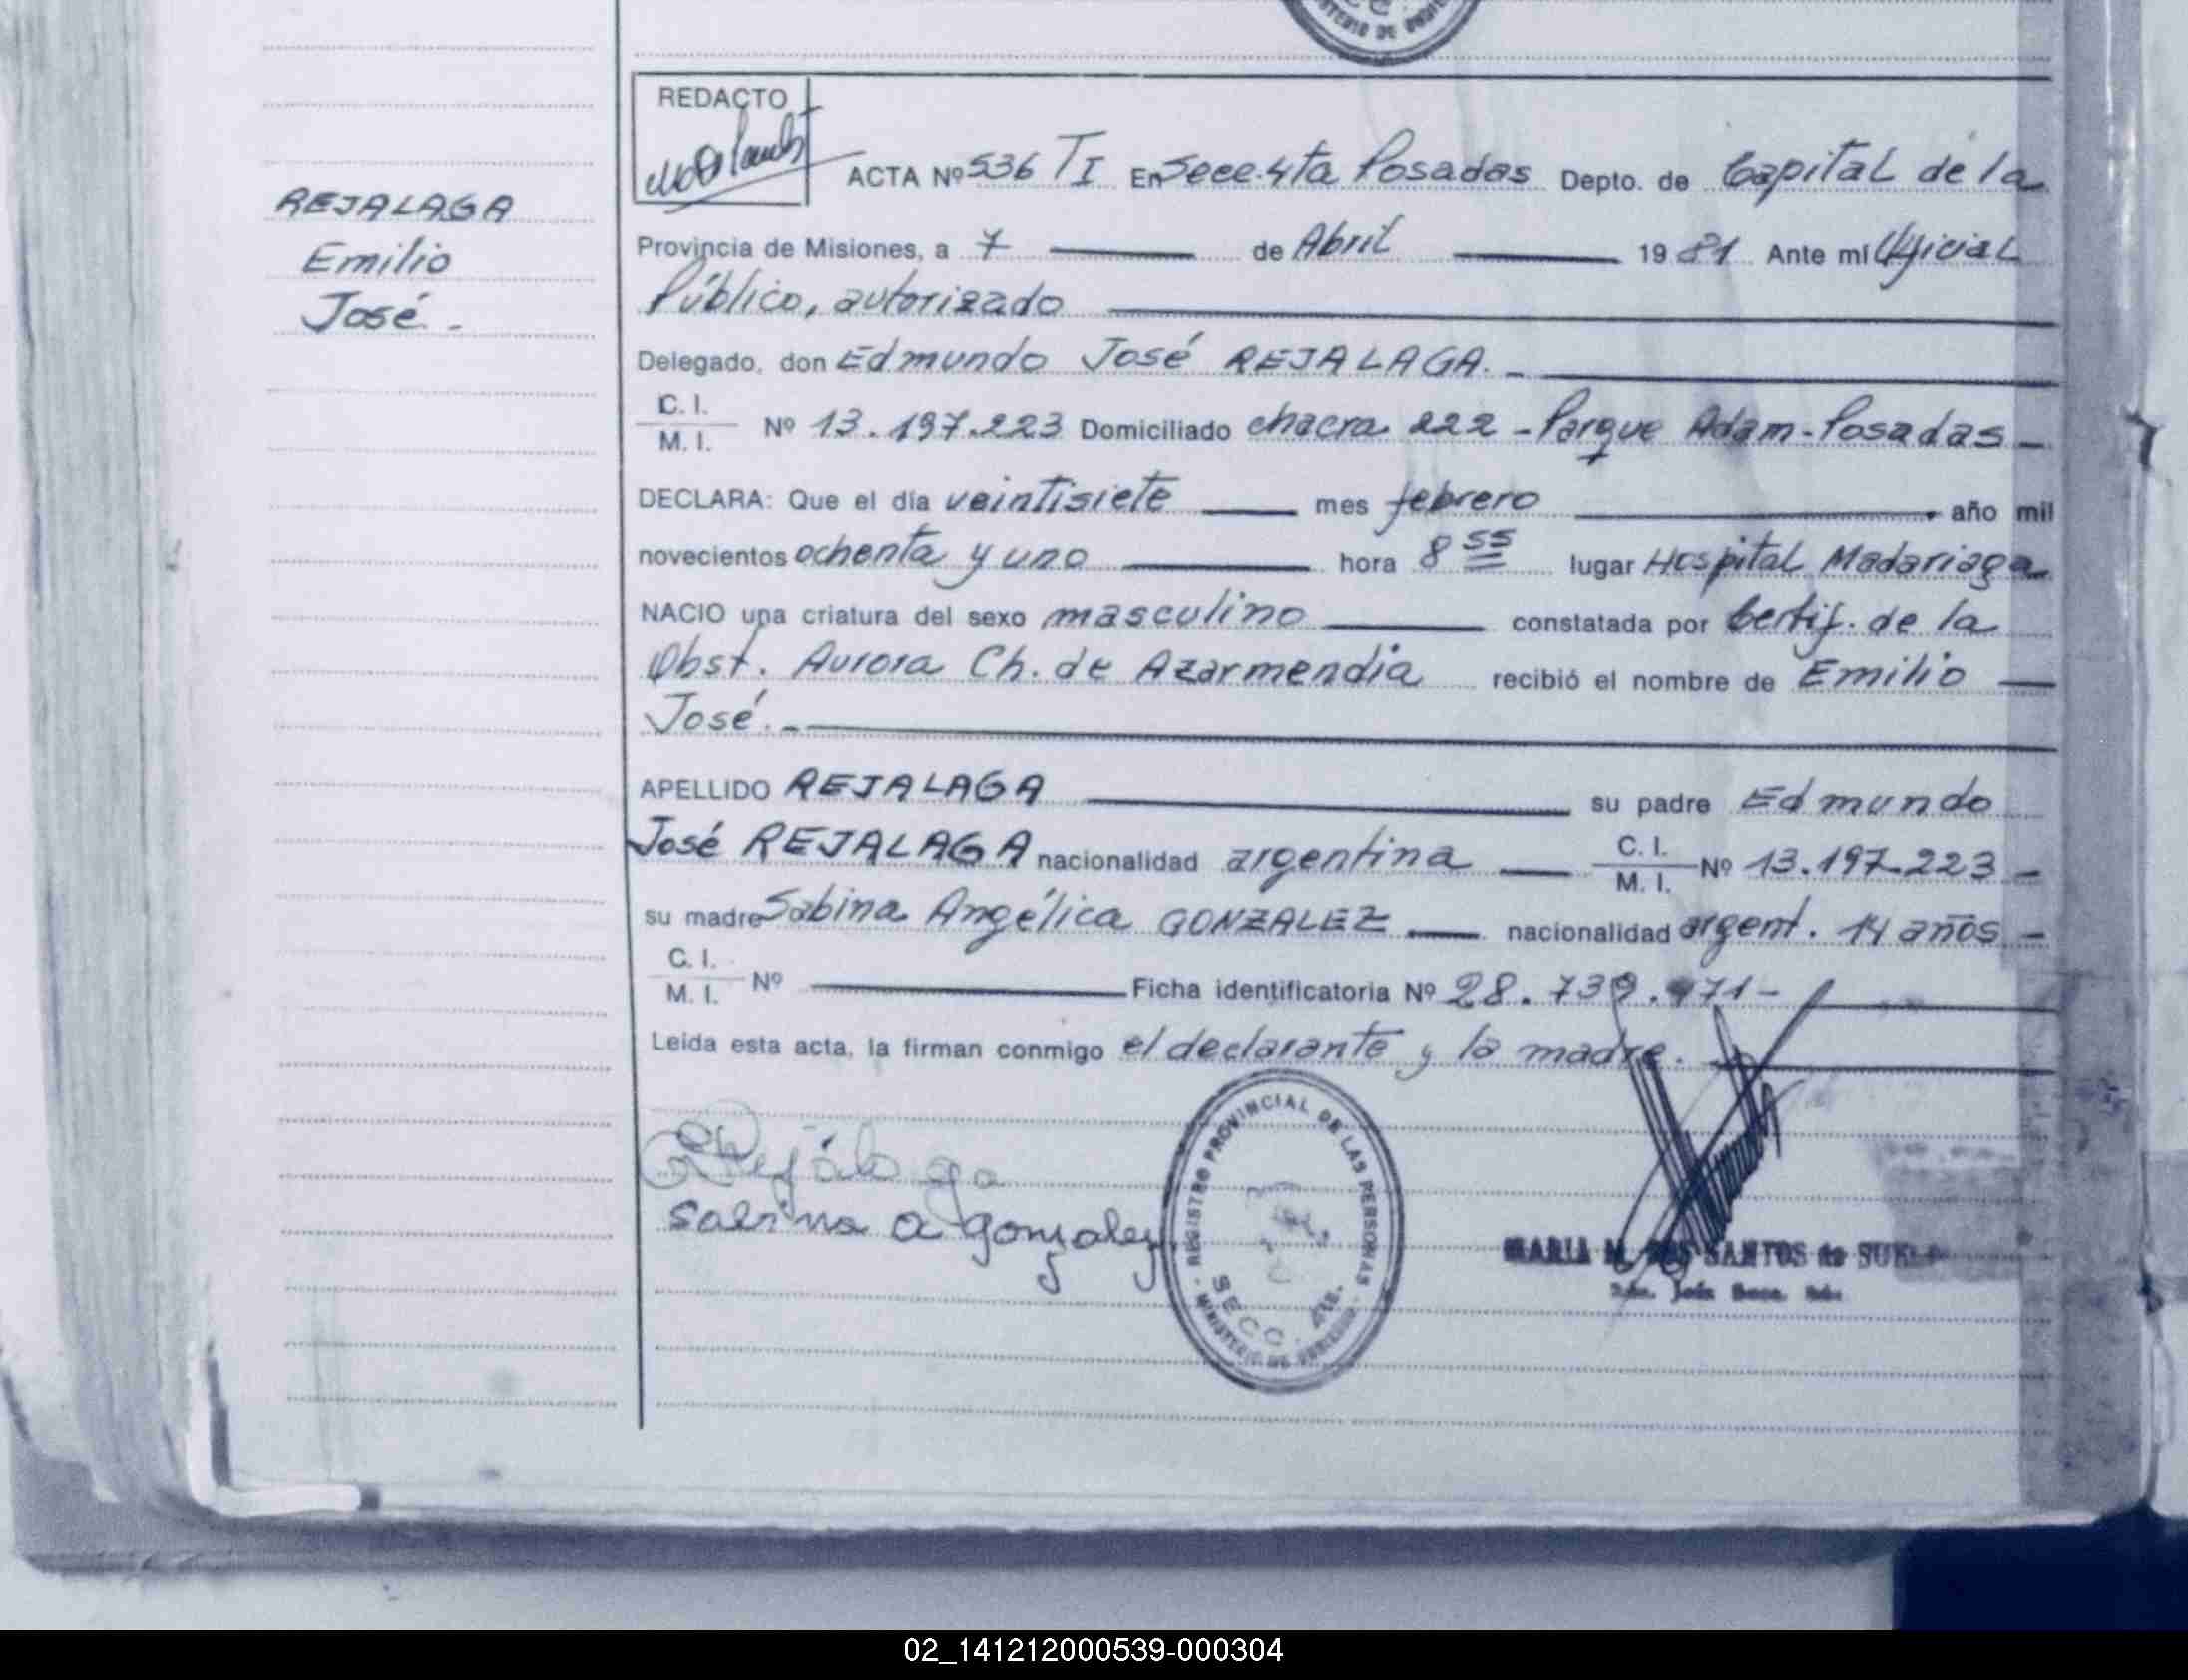 REDACTO
ACTA Nº 536 TI En Secc. 4ta Posadas Depto. de Capital de la
REJALAGA
Emilio
José.-
Provincia de Misiones, a 7 de Abril 1981 Ante mí Oficial
Público, autorizado
Delegado, don Edmundo José REJALAGA.-
C. I.
M. I. Nº 13.197.223 Domiciliado chacra 222 - Parque Adam - Posadas -
DECLARA: Que el día veintisiete mes febrero año mil
novecientos ochenta y uno hora 8 55 lugar Hospital Madariaga
NACIO una criatura del sexo masculino constatada por Certif. de la
Obst. Aurora Ch. de Azarmendia recibió el nombre de Emilio
José.-
APELLIDO REJALAGA su padre Edmundo
José REJALAGA nacionalidad argentina C. I.
M. I. Nº 13.197.223 -
su madre Sabina Angélica GONZALEZ nacionalidad argent. 14 años -
C. I.
M. I. Nº Ficha identificatoria Nº 28.739.971-
Leída esta acta, la firman conmigo el declarante y la madre.
Rejálaga
Sabina A Gonzalez
REGISTRO PROVINCIAL DE LAS PERSONAS
SECC. 4ta.
MINISTERIO DE GOBIERNO
MARIA M. DOS SANTOS de
02_141212000539-000304